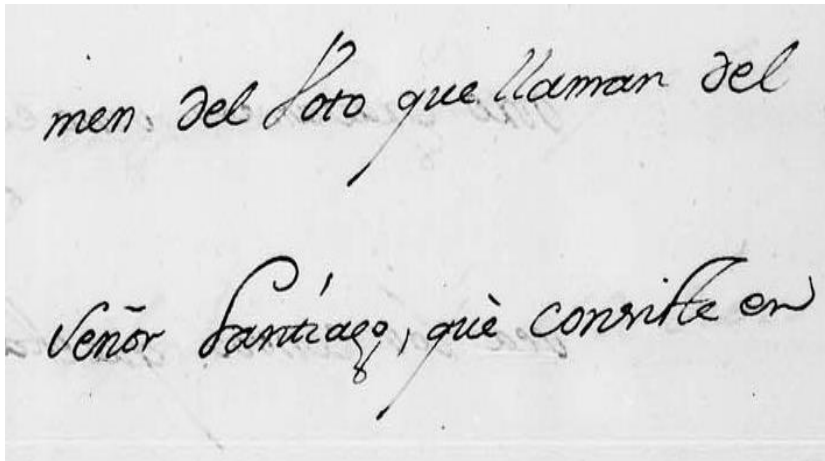 men del Voto que llaman del
Señor Santiago, què consiste en